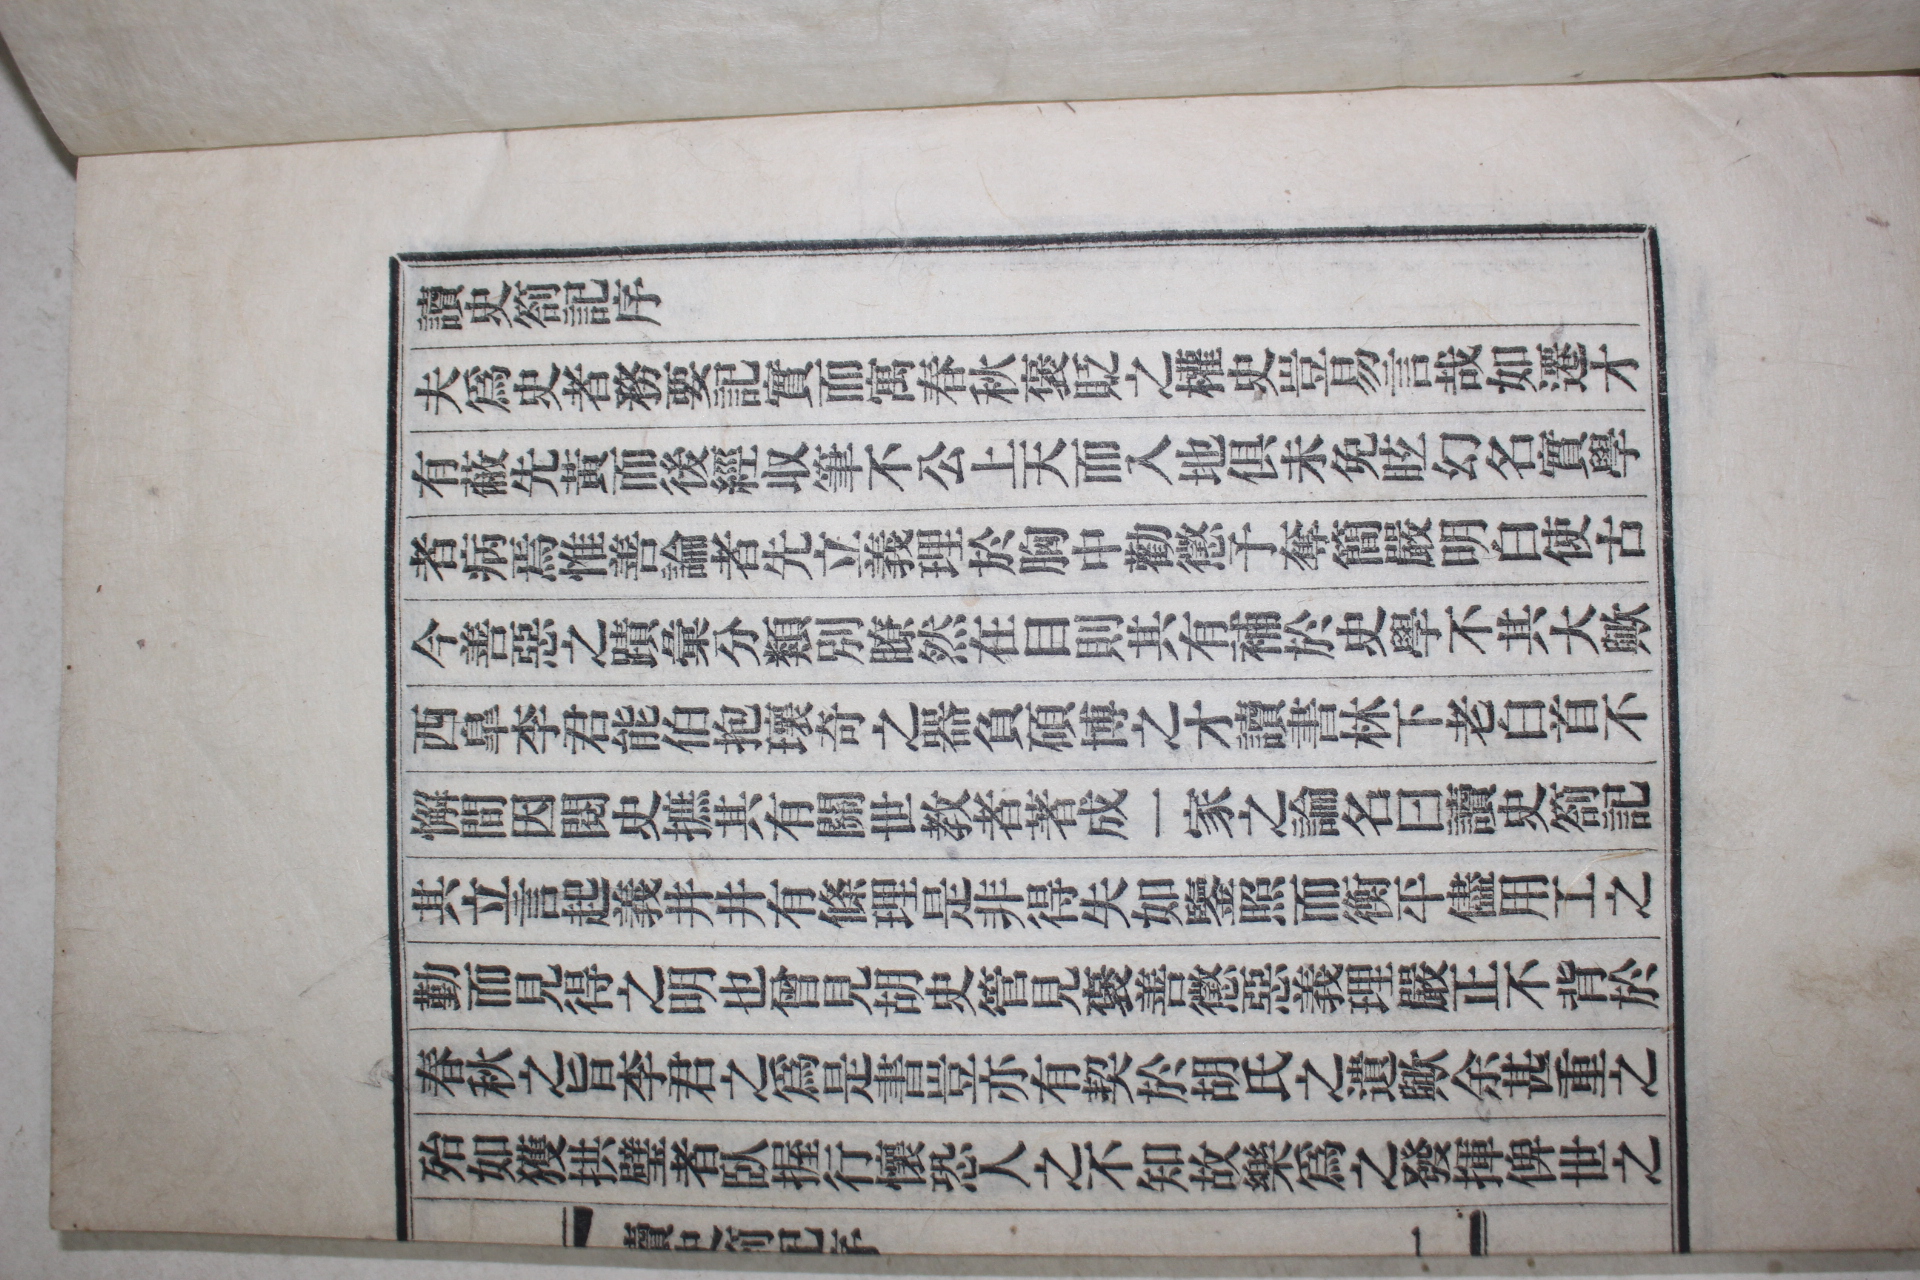 讀史箚記序
夫爲史者務要記實而寓春秋褒貶之權史豈易言哉如遷才
有蔽先黃而後經収筆不公上天而入地俱未免眩幻名實學
者病焉惟善論者先立義理於胸中勸懲予奪簡嚴明白使古
今善惡之蹟彙分類別瞭然在目則其有補於史學不其大歟
西皐李君能伯抱瓌奇之器負碩博之才讀書林下老白首不
懈間因閱史摭其有關世教者著成一家之論名曰讀史箚記
其立言起義井井有條理是非得失如鑒照而衡平儘用工之
勤而見得之明也曾見胡史管見褒善懲惡義理嚴正不背於
春秋之旨李君之爲是書豈亦有契於胡氏之遺歟余甚重之
殆如獲拱璧者臥握行懷恐人之不知故樂爲之發揮俾世之
讀史箚記序
一